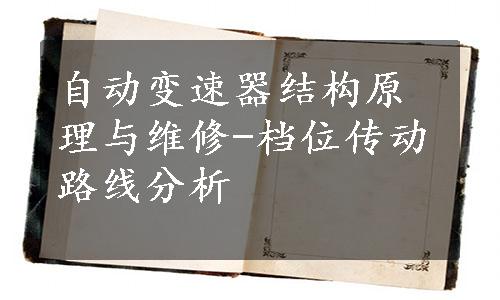 自动变速器结构原
理与维修-档位传动
路线分析